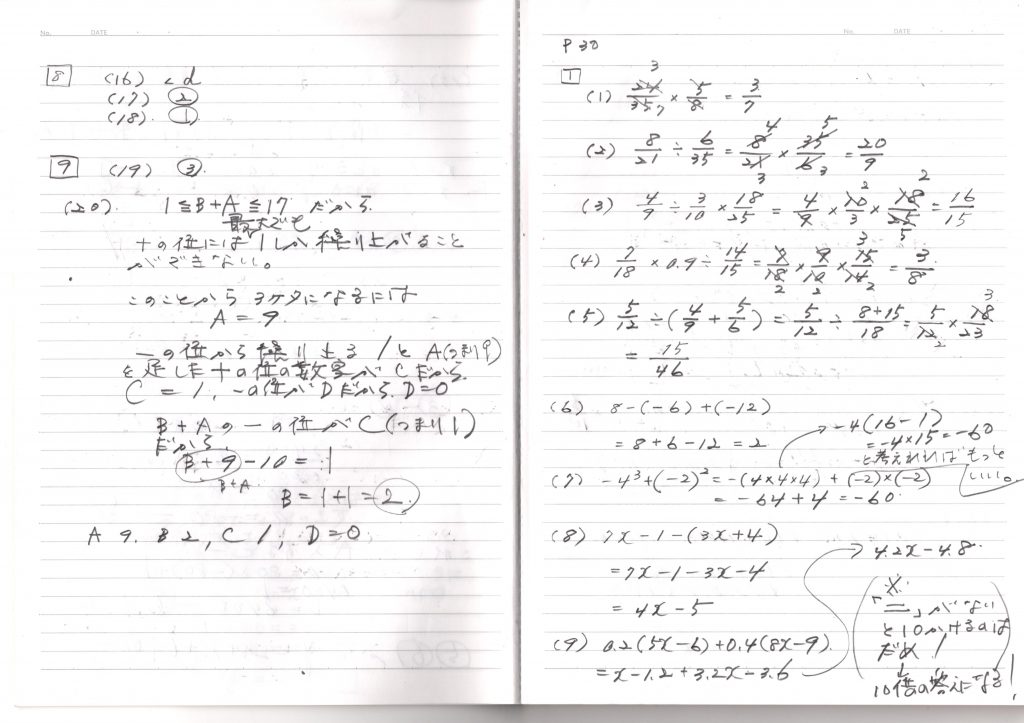 No. DATE
8 (16) c d
(17) 2
(18) 1
9 (19) 3
(20) 1≦B+A≦17 だから
最大でも
十の位には1しか繰り上がること
ができない。
このことから3ケタになるには
A=9
一の位から繰り上がる1とA(つまり9)
を足した十の位の数字がCだから
C=1, 一の位がDだから、D=0
B+Aの一の位がC(つまり1)
だから
B+9-10=1
B+A
B=1+1=2
A 9, B 2, C 1, D=0
No. DATE
P30
1
(1) 24/35 × 5/8 = 3/7
(2) 8/21 ÷ 6/35 = 8/21 × 35/6 = 20/9
(3) 4/9 ÷ 3/10 × 18/25 = 4/9 × 10/3 × 18/25 = 16/15
(4) 7/18 × 0.9 ÷ 14/15 = 7/18 × 9/10 × 15/14 = 3/8
(5) 5/12 ÷ (4/9 + 5/6) = 5/12 ÷ (8+15)/18 = 5/12 × 18/23
= 15/46
(6) 8-(-6)+(-12)
= 8+6-12 = 2
-4(16-1)
=-4×15=-60
と考えればもっと
いい。
(7) -4³+(-2)² = -(4×4×4)+(-2)×(-2)
= -64+4 = -60
(8) 7x-1-(3x+4)
= 7x-1-3x-4
= 4x-5
(9) 0.2(5x-6)+0.4(8x-9)
= x-1.2+3.2x-3.6
4.2x-4.8
※
「=」がない
と10かけるのは
だめ!
↓
10倍の答えになる!